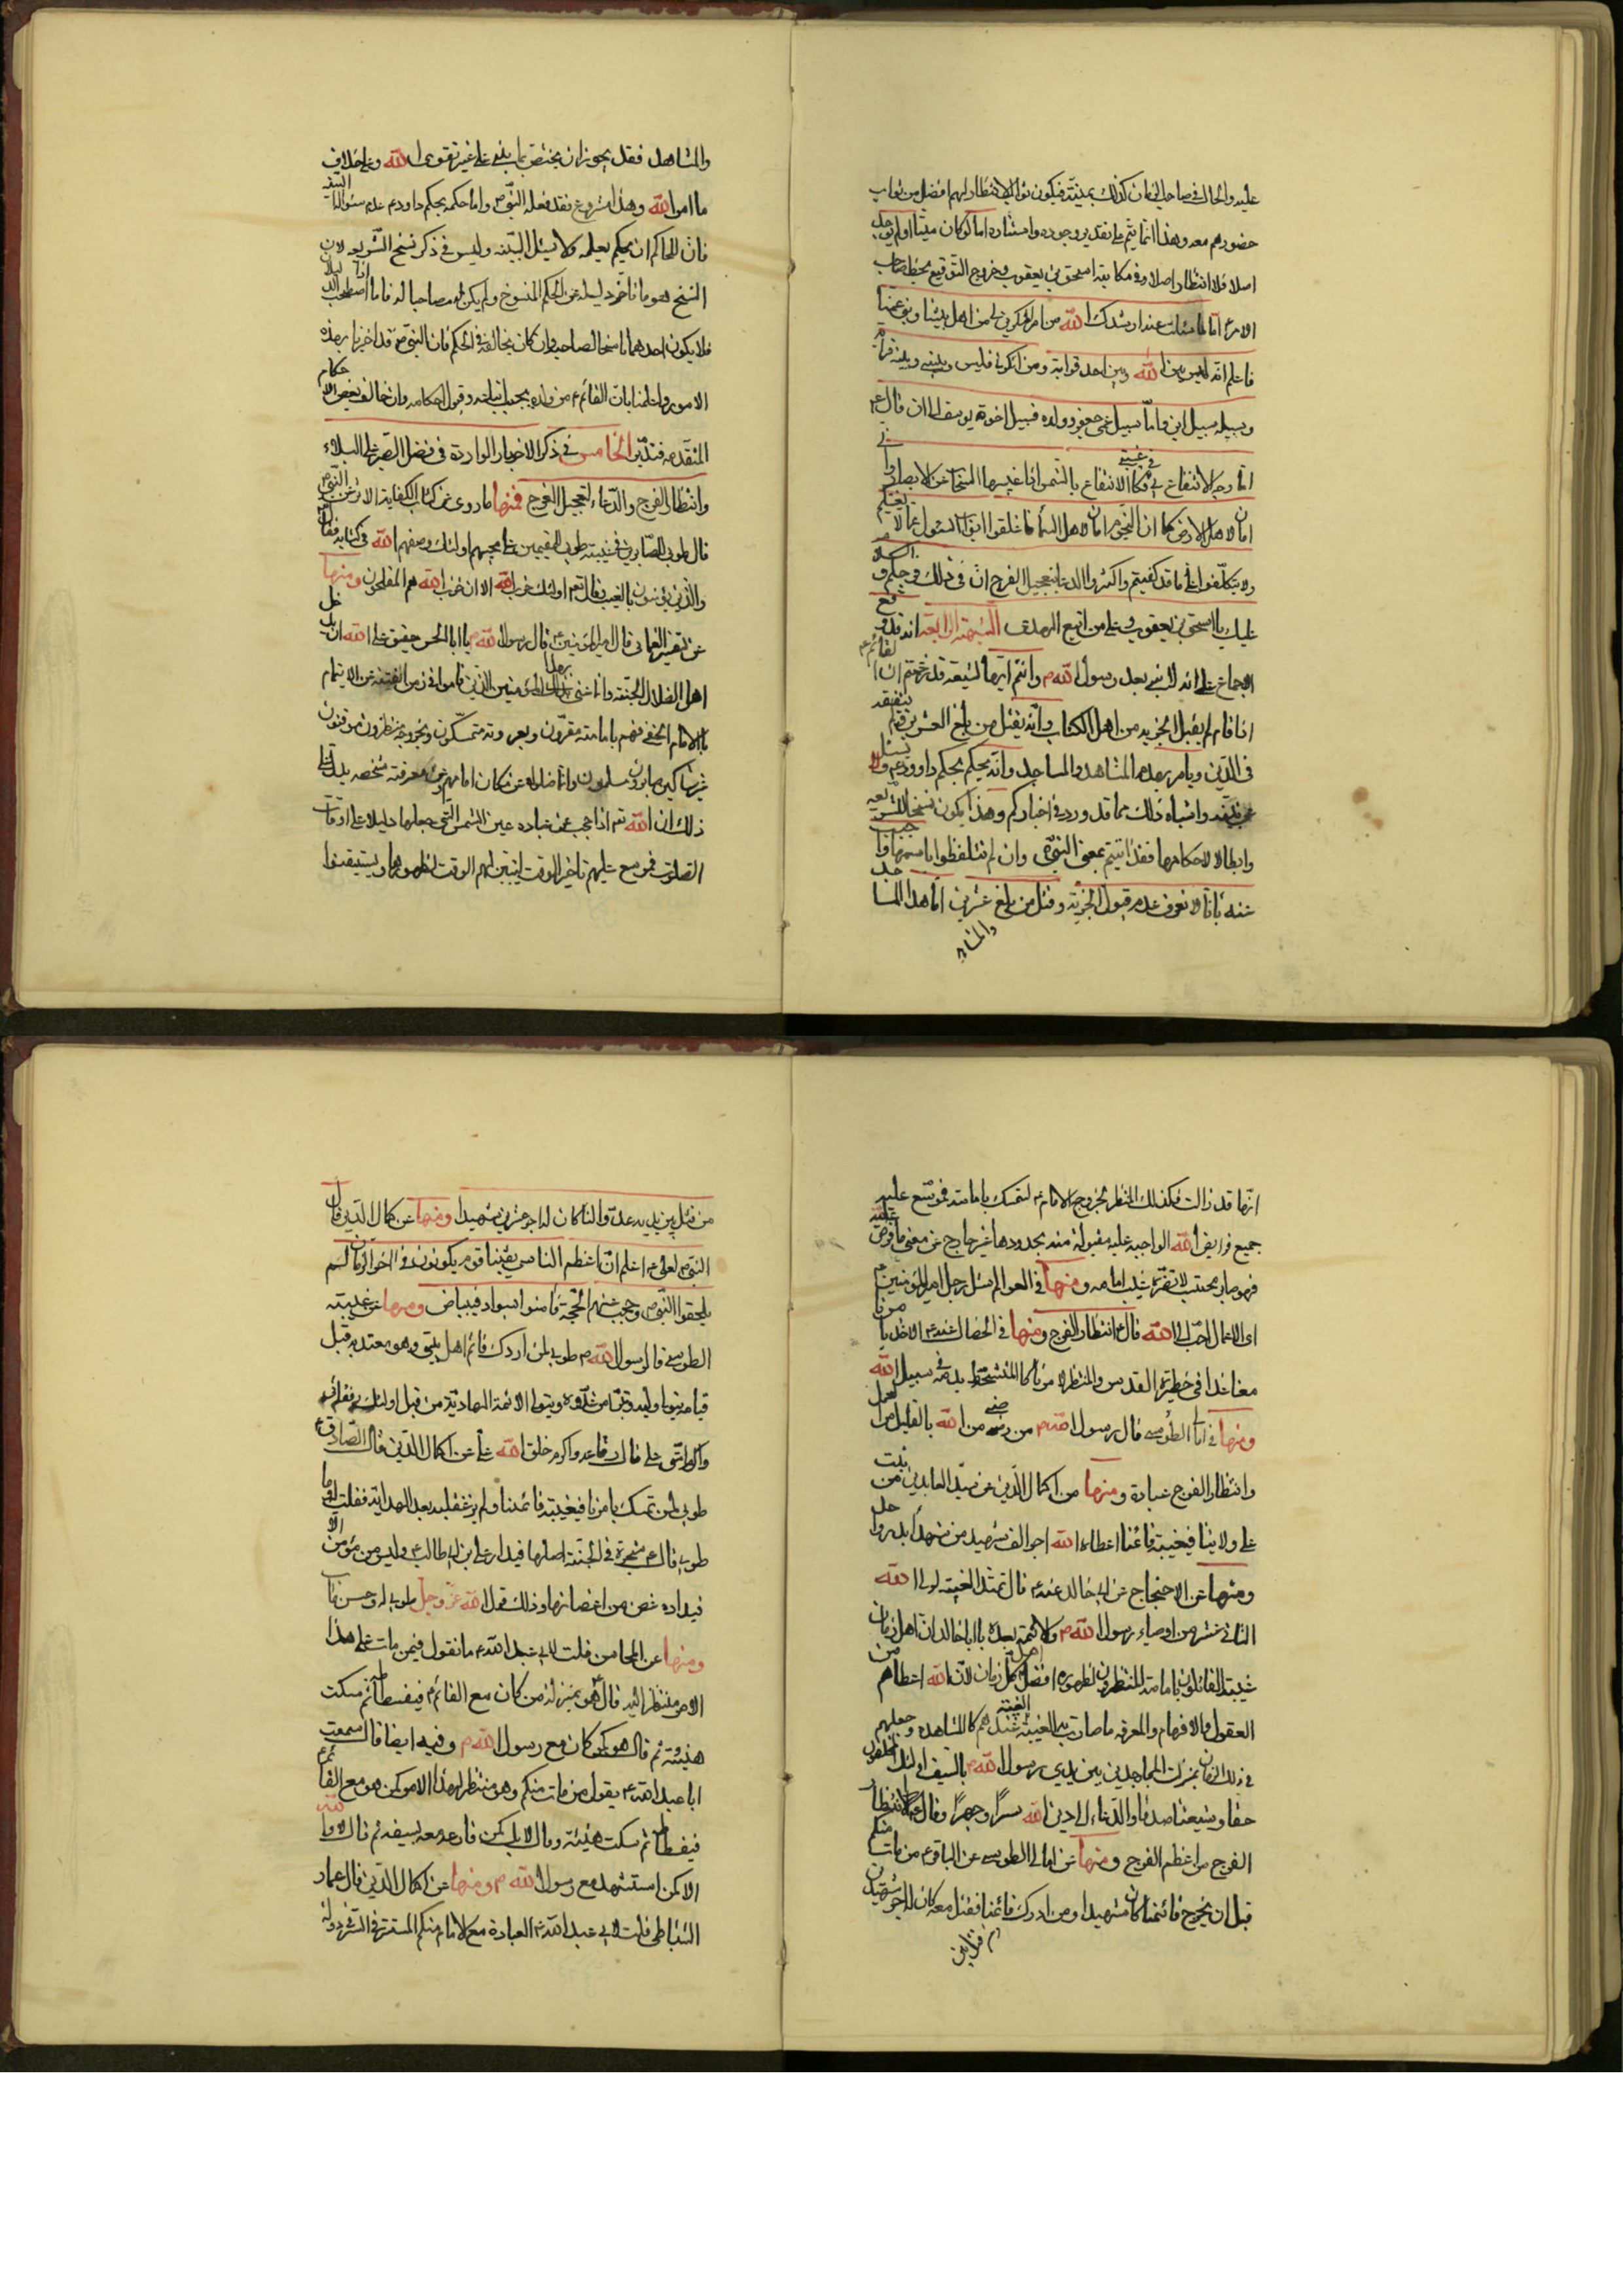 عليه والحال في صاحب الزمان كذلك بمنيته فيكون ثواب الانتظار لهم افضل من ثواب
حضورهم معه وهذا انما يتم على تقدير وجوده واستتاره اما لو كان ميتا او لم يوجد
اصلا فلا انتظار اصلا وفي مكاتبة اسحق بن يعقوب وخروج التوقيع بخط صاحب
الامر ع اما ما سئلت عنه ارشدك الله من امر المنكرين لي من اهل بيتنا وبنو عمنا
فاعلم انه ليس بين الله وبين احد قرابة ومن انكرني فليس وبيني وبينه قرابة
وسبيله سبيل ابن نوح اما سبيل عمي جعفر وولده فسبيل اخوة يوسف الى ان قال ع
اما وجه الانتفاع بي في غيبتي فكالانتفاع بالشمس اذا غيبها السحاب عن الابصار واني
امان لاهل الارض كما ان النجوم امان لاهل السماء فاغلقوا ابواب السئول عما لا يعنيكم
ولا يتكلفوا على ما قد كفيتم واكثروا الدعا بتعجيل الفرج ان في ذلك فرجكم والسلام
عليك يا اسحق بن يعقوب وعلى من اتبع الهدى الشبهة الرابعة انه قد وقع
الاجماع على انه لا نبي بعد رسول الله ص وانتم ايها الشيعة قد زعمتم ان القائم ع
اذا قام لم يقبل الجزيه من اهل الكتاب وانه يقتل من بلغ العشرين ولم يتفقه
في الدين ويامر بهدم المشاهد والمساجد وانه يحكم بحكم داود ع ولا يسئل
عن بينه واشباه ذلك مما قد ورد في اخباركم وهذا يكون نسخا للشريعه
وابطالا لاحكامها فقد اثبتم معنى النبوة وان لم تتلفظوا باسمها واجيب
عنه بانا لا نعرف عدم قبول الجزية وقتل من بلغ عشرين اما هدم المساجد
والمشاهد
والمشاهد فقد يجوز ان يختص بما بني على غير تقوى الله وعلى خلاف
ما امر الله وهذا مشروع فقد فعله النبي ص واما حكمه بحكم داود ع عدم سئوال البينة
فان للحاكم ان يحكم بعلمه ولا يسئل البينه وليس في ذكر نسخ الشريعه لان
النسخ هو ما تاخر دليله عن الحكم المنسوخ ولم يكن مصاحبا له فاما اذا اصطحب الدليلان
فلا يكون احدهما ناسخا لصاحبه وان كان يخالفه في الحكم فان النبي ص قد اخبرنا بهذه
الامور واعلمنا بان القائم ع من ولده يجب اتباعه وقبول احكامه وان خالف بعض الاحكام
المتقدمه فتدبر الخامس في ذكر الاخبار الواردة في فضل الصبر على البلاء
وانتظار الفرج والدعاء لتعجيل الفرج فمنها ما روى عن كتاب الكفاية الاثر عن النبي ص
قال طوبى للصابرين في غيبته طوبى للمقيمين على محبتهم اولئك وصفهم الله في كتابه فقال
والذين يؤمنون بالغيب وقال تعم اولئك حزب الله الا ان حزب الله هم المفلحون ومنها
عن تفسير النعماني قال امير المؤمنين ع قال رسول الله ص يا ابا الحسن حقيق على الله ان يدخل
اهل الضلال الجنة وانما عنى بهذا المؤمنين الذين قاموا في زمن الفتنة عن الايتمام
بالامام الخفي فهم بامامته مقرون وبعروته متمسكون وبخروجه منتظرون موقنون
غير شاكين صابرون مسلمون وانما ضلوا عن مكان امامهم وعن معرفة شخصه يدل على
ذلك ان الله تعم اذا حجب عن عباده عين الشمس التي جعلها دليلا على اوقات
الصلوة فموسع عليهم تاخير الوقت ليتبين لهم الوقت لظهورها ويستيقنوا
انها قد زالت فكذلك المنتظر لخروج الامام ع المتمسك بامامته فموسع عليه
جميع فرايض الله الواجبه عليه مقبولة منه بحدودها غير خارج عن معنى ما فرض عليه
فهو صابر محتسب لا تضره غيبة امامه ومنها في العوالم سئل رجل امير المؤمنين ع
اى الاعمال احب الى الله قال ع انتظار الفرج ومنها في الخصال عنه ع الاخذ بامرنا
معنا غدا في حظيرة القدس والمنتظر لامرنا كالمتشحط بدمه في سبيل الله
ومنها في امالي الطوسي قال رسول الله ص من رضي من الله بالقليل من العمل
وانتظار الفرج عبادة ومنها من اكمال الدين عن سيد العابدين من ثبت
على ولايتنا في غيبة قائمنا اعطاه الله اجر الف شهيد من شهداء بدر واحد
ومنها عن الاحتجاج عن ابي خالد عنه ع قال تمتد الغيبة لولي الله
الثاني عشر من اوصياء رسول الله ص والائمة بعده يا ابا خالد ان اهل زمان
غيبته القائلون بامامته المنتظرون لظهوره افضل من اهل كل زمان لان الله اعطاهم من
العقول والافهام والمعرفه ما صارت به الغيبة عندهم كالمشاهده وجعلهم
في ذلك الزمان بمنزلت المجاهدين بين يدي رسول الله ص بالسيف اولئك المخلصون
حقا وشيعتنا صدقا والدعاء الى دين الله سرا وجهرا وقال ع انتظار
الفرج من اعظم الفرج ومنها عن امالي الطوسي عن الباقر ع من مات منكم
قبل ان يخرج قائمنا كان شهيدا ومن ادرك قائمنا فقتل معه كان له اجر شهيدين
من قتل بين يديه عدوا لنا كان له اجر عشرين شهيدا ومنها عن كمال الدين قال
النبي ص لعلي ع اعلم ان اعظم الناس يقينا قوم يكونون في اخر الزمان لم
يلحقوا النبي ص وحجب عنهم الحجة فامنوا بسواد في بياض ومنها عن غيبة
الطوسي قال رسول الله ص طوبى لمن ادرك قائم اهل بيتي وهو معتد به قبل
قيامه يتولى وليه ويتبرأ من عدوه ويتولى الائمة الهادية من قبل اولئك رفقائي
واكرم امتي على قال رفاعه واكرم خلق الله على عن اكمال الدين قال الصادق ع
طوبى لمن تمسك بامرنا في غيبة قائمنا ولم يزغ قلبه بعد الهداية فقلت له وما
طوبى قال ع شجرة في الجنة اصلها في دار علي ابن ابي طالب ع وليس من مؤمن الا
في داره غصن من اغصانها وذلك قول الله عز وجل طوبى لهم وحسن ماب
ومنها عن المحاسن قلت لابي عبد الله ع ما تقول فيمن مات على هذا
الامر منتظرا له قال هو بمنزلة من كان مع القائم ع في فسطاطه ثم سكت
هنيئة ثم قال هو كمن كان مع رسول الله ص وفيه ايضا قال سمعت
ابا عبد الله ع يقول من مات منكم وهو منتظر لهذا الامر كمن هو مع القائم ع
في فسطاطه ثم سكت هنيئة وقال لا بل كمن قارع معه بسيفه ثم قال لا والله
الا كمن استشهد مع رسول الله ص ومنها عن اكمال الدين قال عمار
الساباطي قلت لابي عبد الله ع العبادة مع الامام منكم المستتر في السر في دولة